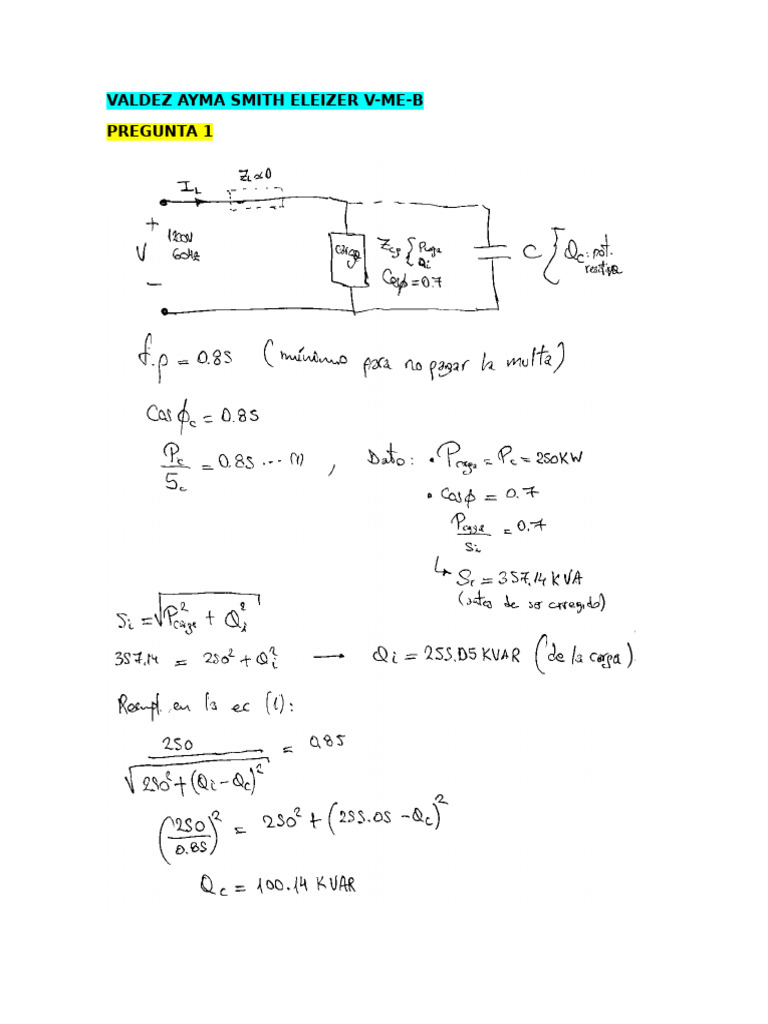 VALDEZ AYMA SMITH ELEIZER V-ME-B
PREGUNTA 1
I_L
Z_L≈0
+
V
1200V
60Hz
−
carga
Z_cg { Pcarga
Qi
Cosφ=0.7
C { Qc: pot.
f.p = 0.85 (mínimo para no pagar la multa)
Cosφc = 0.85
Pc/Sc = 0.85 ... (1) , Dato: • Pcarga = Pc = 250KW
• Cosφ = 0.7
Pcarga/Si = 0.7
↳ Si = 357.14 KVA
(antes de ser corregido)
Si = √(Pcarga² + Qi²)
357.14 = 250² + Qi² → Qi = 255.05 KVAR (de la carga).
Reempl. en la ec (1):
250/√(250² + (Qi − Qc)²) = 0.85
(250/0.85)² = 250² + (255.05 − Qc)²
Qc = 100.14 KVAR